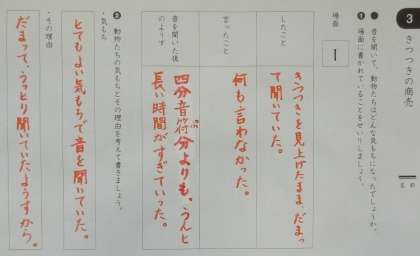 3
きつつきの商売
名前
●音を聞いて、動物たちはどんな気もちになったでしょうか。
❶場面に書かれていることをせいりしましょう。
場面
1
したこと
きつつきを見上げたまま、だまっ
て聞いていた。
言ったこと
何も言わなかった。
音を聞いた後
のようす
四分音符分よりも、うんと
長い時間がすぎていった。
❷動物たちの気もちとその理由を考えて書きましょう。
・気もち
とてもよい気もちで音を聞いていた。
・その理由
だまって、うっとり聞いていたようすから。